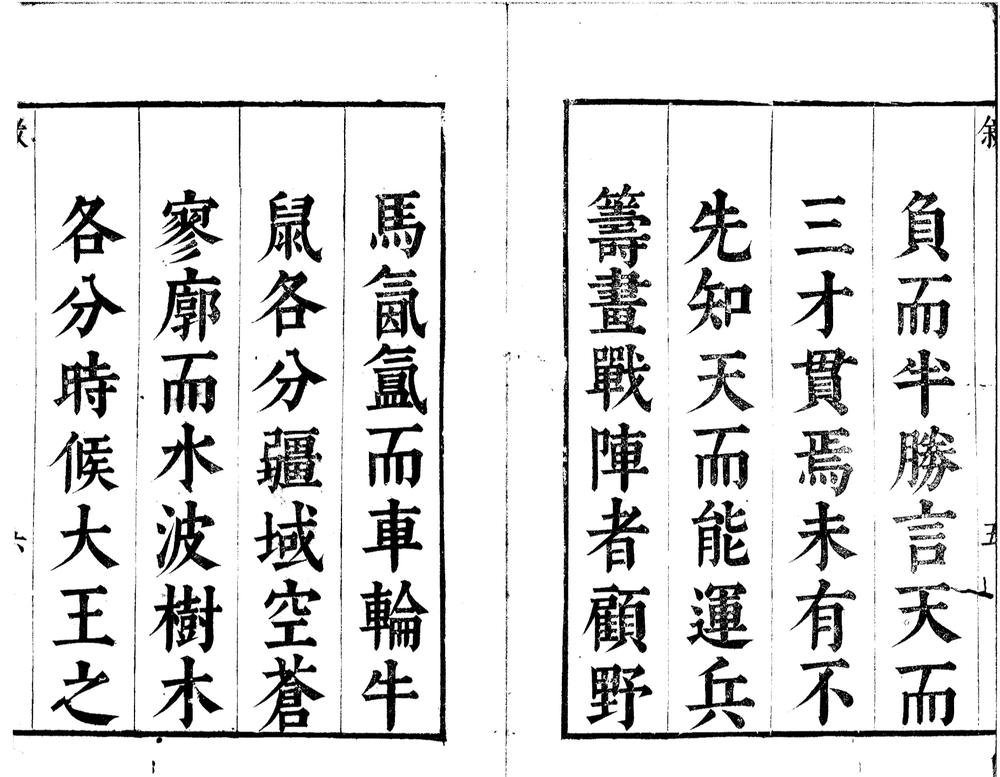 負而半勝言天而
三才貫焉未有不
先知天而能運兵
籌畫戰陣者顧野
馬氤氳而車輪牛
鼠各分疆域空蒼
寥廓而水波樹木
各分時候大王之